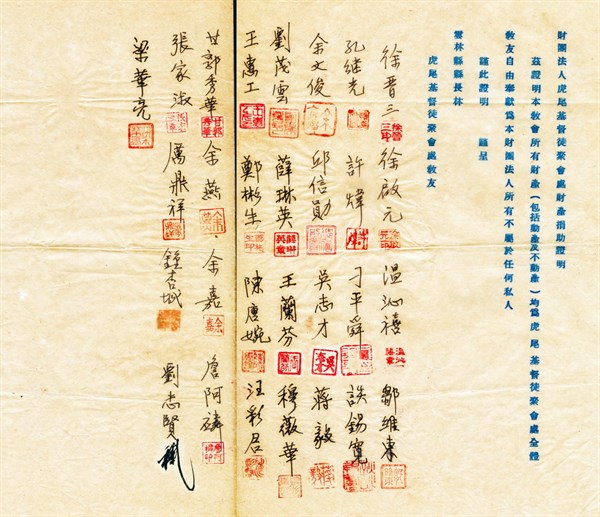 財團法人虎尾基督徒聚會處財產捐助證明
茲證明本教會所有財產(包括動產及不動產)均為虎尾基督徒聚會處全體
教友自由奉獻為本財團法人所有不屬於任何私人
謹此證明 謹呈
雲林縣縣長林
虎尾基督徒聚會處教友
徐晋三 徐啟元 温沁禧 鄒維東
孔继光 許煒 刁平舜 錫寬
余文俊 邱信勛 吳志才 蔣毅
劉茂雲 薛琳英 王蘭芬 穆薇華
王惠工 鄭彬生 陳唐婉 汪彩君
甘郭秀華 余燕 余嘉 詹阿麟
張家淑 厲鼎祥 鍾杏城 劉志賢
梁華亮